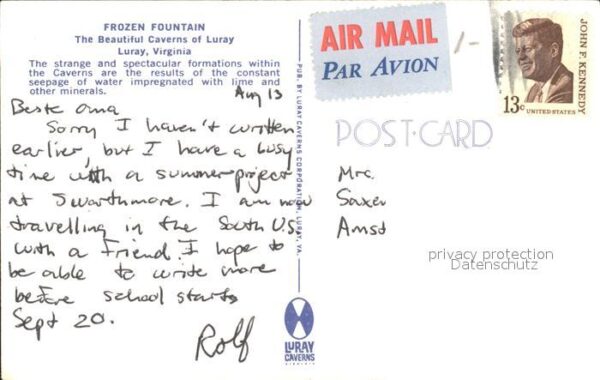 FROZEN FOUNTAIN
The Beautiful Caverns of Luray
Luray, Virginia
The strange and spectacular formations within
the Caverns are the results of the constant
seepage of water impregnated with lime and
other minerals.
Aug 13
Beste Oma
Sorry I haven't written
earlier, but I have a busy
time with a summerproject
at Swarthmore. I am now
travelling in the South U.S.
with a friend. I hope to
be able to write more
before school starts
Sept 20.
Rolf
PUB. BY LURAY CAVERNS CORPORATION, LURAY, VA.
LURAY
CAVERNS
VIRGINIA
AIR MAIL
PAR AVION
1-
JOHN F. KENNEDY
13c
UNITED STATES
POST CARD
Mrs.
Saxer
Amst
privacy protection
Datenschutz